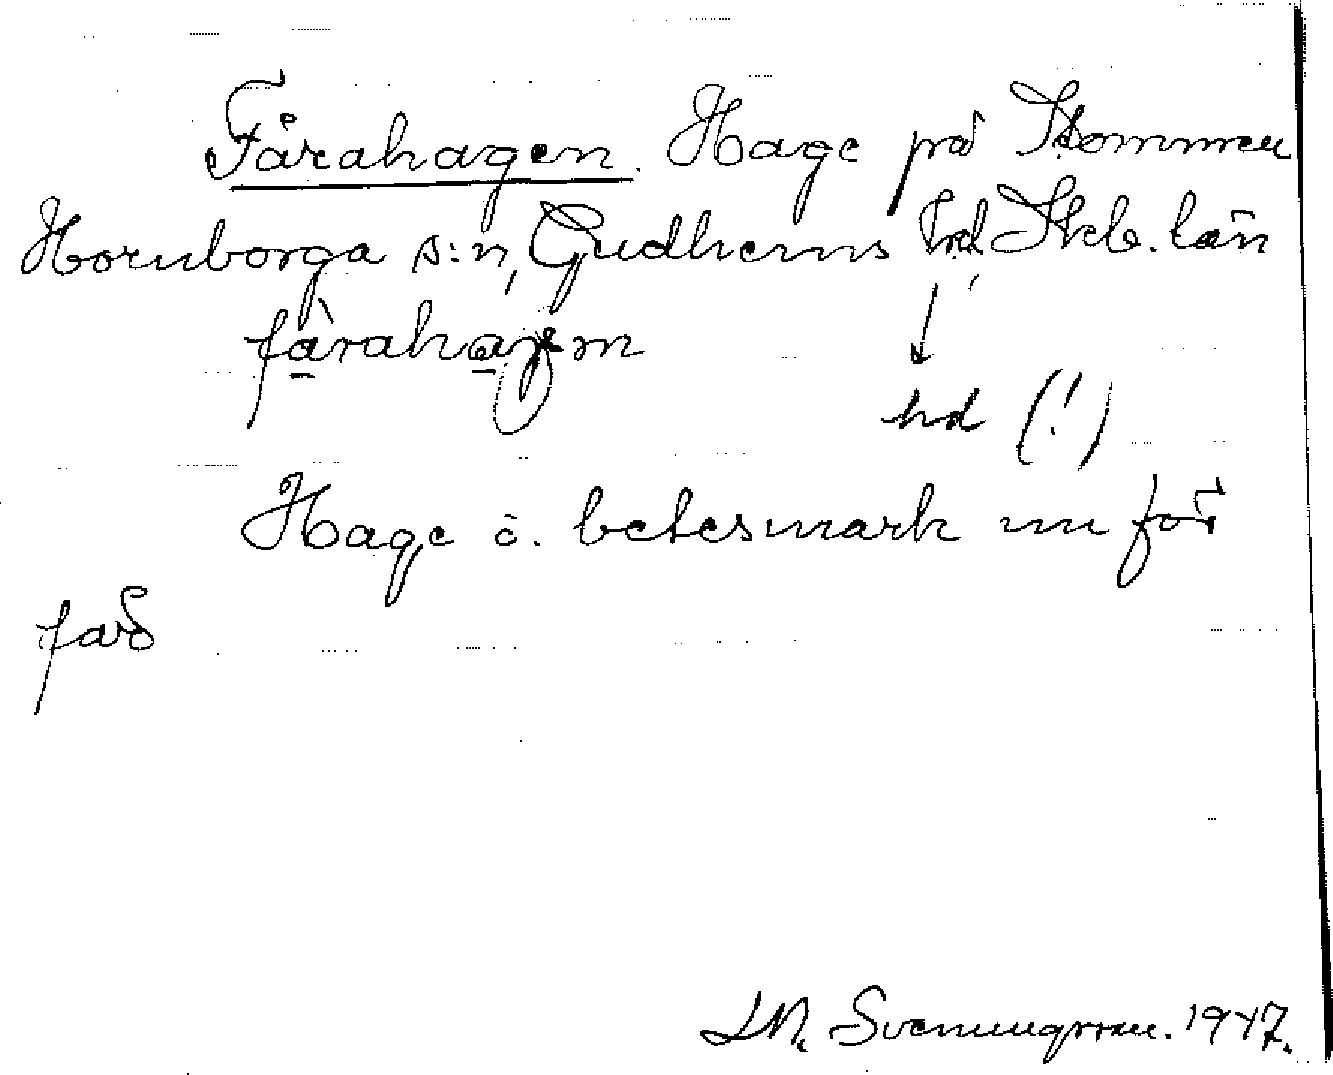 Fårahagen. Hage på Stommen
Hornborga s:n, Gudhems hd, Skb. län
fårahagen
hd (!)
Hage o. betesmark nu för
får
Svenungsson. 1947.